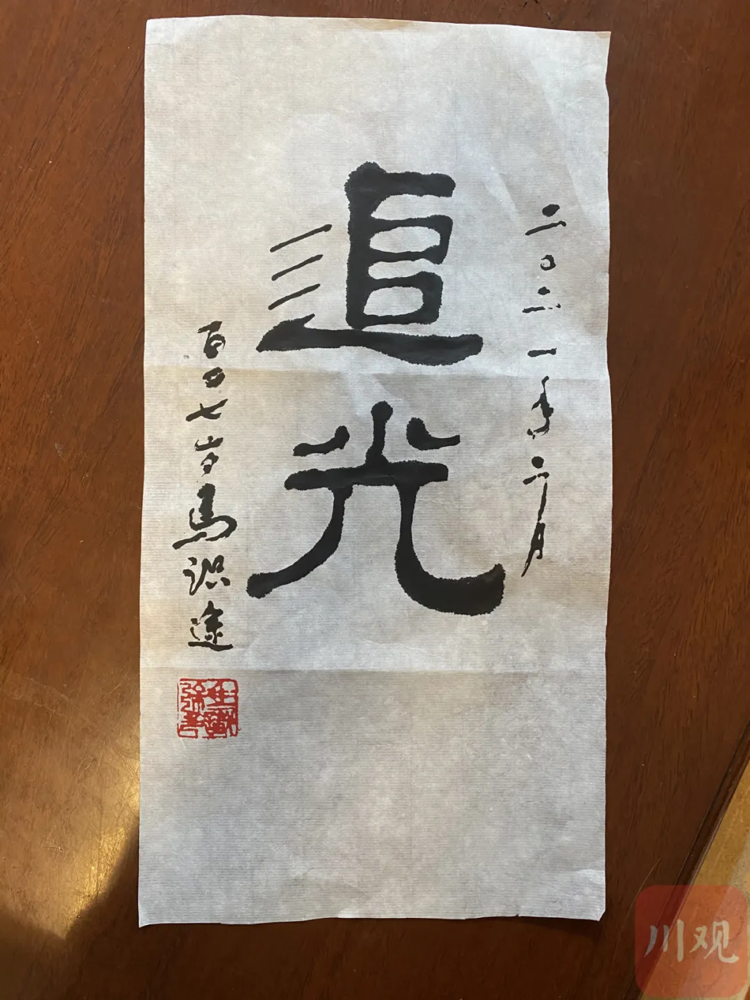 二〇二一年二月
追光
百〇七岁马识途
川观